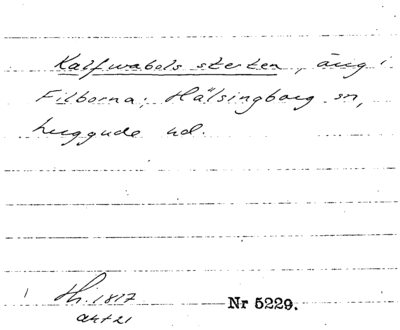 Kalfwabels sterten, äng i
Filborna; Hälsingborg sn,
Luggude hd.
Hh. 1817
akt 21
Nr 5229.